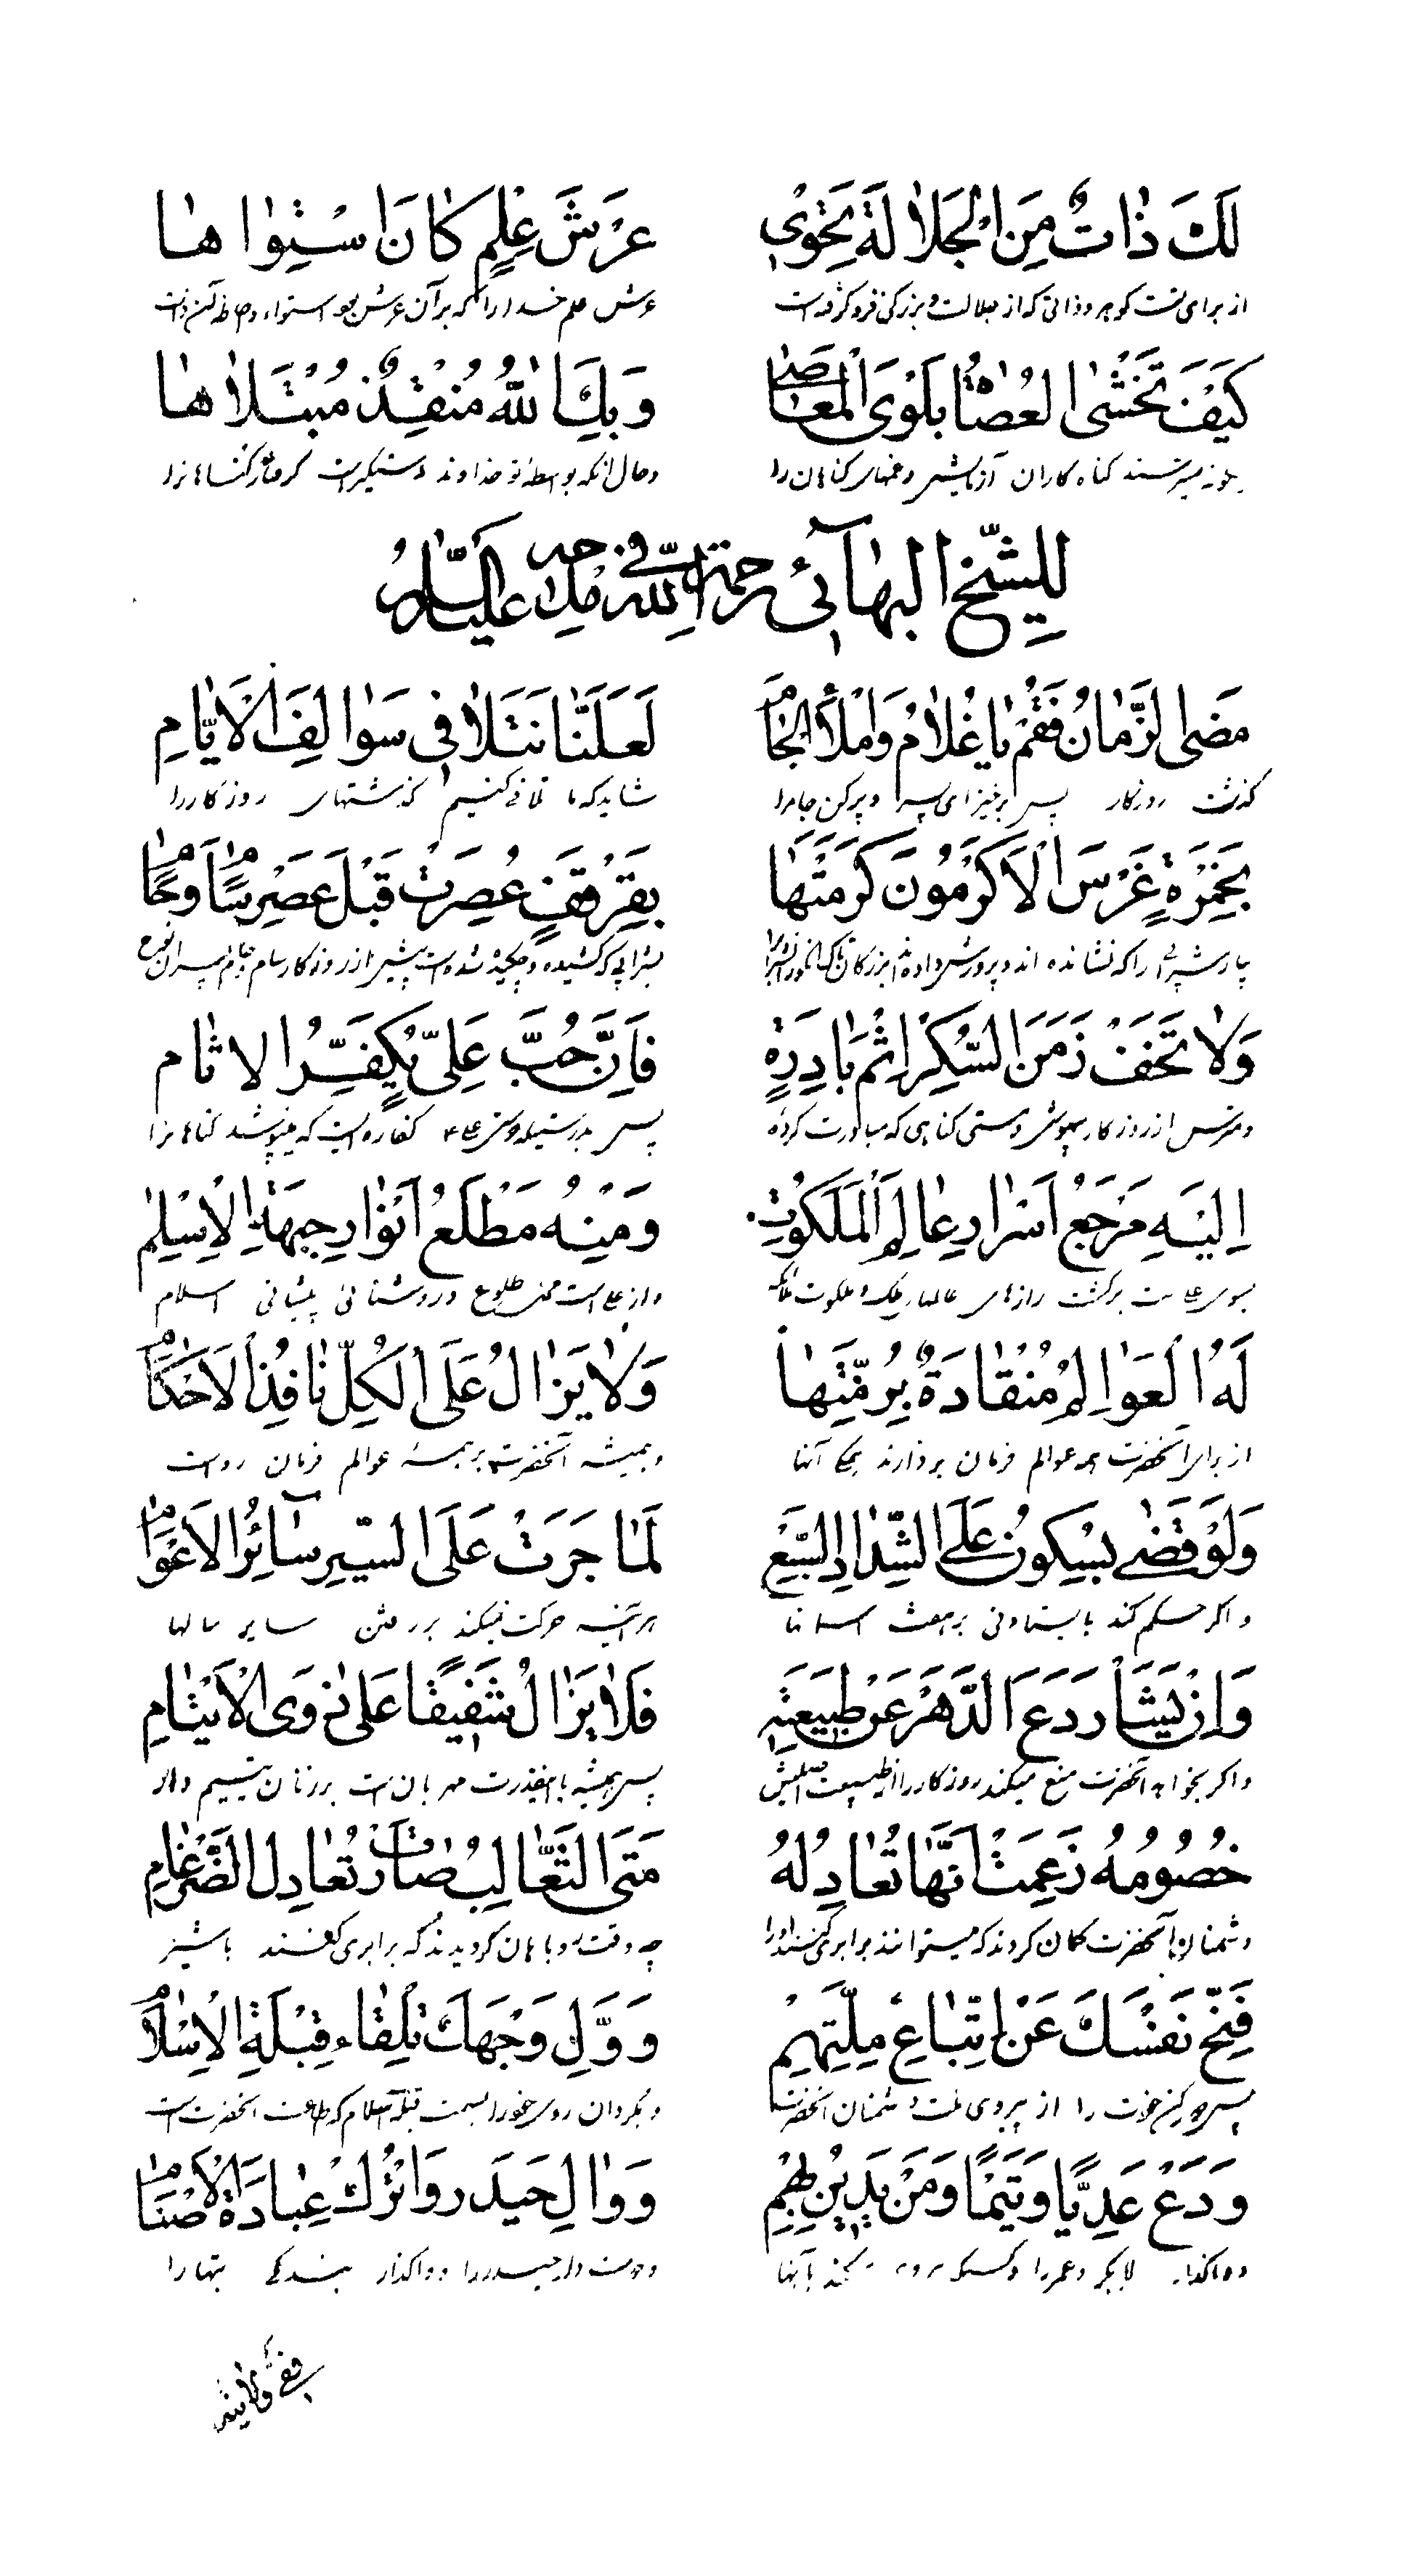 لَكَ ذٰاتٌ مِنَ الْجَلاٰلَةِ تَحْوٖى عَرْشَ عِلْمٍ كٰانَ اسْتِوٰاهٰا
از براى تست كوهر و ذاتى كه از جلالت و بزركى فرو كرفته است عرش علم خدا را كه بر آن عرش بود استواء
كَيْفَ تَخْشَى الْعُصٰاةُ بَلْوَى الْمَعٰاصٖى وَبِكَ اللّٰهُ مُنْقِذٌ مُبْتَلاٰهٰا
ميترسند كناه كاران آزمايش و غمهاى كناهان را و حال آنكه بواسطه تو خداوند دستكير است كرفتار كناهانرا
لِلشَّيْخِ الْبَهٰآئٖى رَحْمَةُ اللّٰهِ فٖى مَدْحِ عَلٖى عَلَيْهِ السَّلاٰمُ
مَضَى الزَّمٰانُ فَقُمْ يٰا غُلاٰمُ وَامْلَأِ الْجٰامَ لَعَلَّنٰا نَتَلاٰفٖى سَوٰالِفَ الْأَيّٰامِ
كذشت روزكار پس برخيز اى پسر و پر كن جام را شايد كه ما تلافى كنيم كذشتهاى روزكار را
بِخَمْرَةٍ غَرَسَ الْأَكْرَمُونَ كَرْمَتَهٰا بِقَرْقَفٍ عُصِرَتْ قَبْلَ عَصْرِ سٰامٍ وَحٰامٍ
بيار شرابى را كه نشانده اند و پرورش داده اند بزركان تاك انكور شرابى كه كشيده و چكيده شده است پيش از روزكار سام و حام پسران نوح
وَلاٰ تَخَفْ زَمَنَ السُّكْرِ اِثْمَ بٰادِرَةٍ فَاِنَّ حُبَّ عَلِىٍّ يُكَفِّرُ الاٰثٰامِ
و مترس از روزكار بيهوشى و مستى كناهى كه مبادرت كرده پس بدرستيكه دوستى على ع كفاره ايست كه ميپوشد كناهانرا
اِلَيْهِ مَرْجَعُ اَسْرٰارِ عٰالَمِ الْمَلَكُوتِ وَمِنْهُ مَطْلَعُ اَنْوٰارِ جِبْهَةِ الْاِسْلٰمِ
بسوى على است بركشت رازهاى عالمهاى ملك و ملكوت ملائكه و از على است محل طلوع و روشنائى پيشانى اسلام
لَهُ الْعَوٰالِمُ مُنْقٰادَةٌ بِرُمَّتِهٰا وَلاٰ يَزٰالُ عَلَى الْكُلِّ نٰافِذَ الْأَحْكٰامِ
از براى آنحضرت همه عوالم فرمان بردارند همكى آنها و هميشه آنحضرت بر همه عوالم فرمان رواست
وَلَوْ قَضٰى بِسُكُونٍ عَلَى الشِّدٰادِ السَّبْعِ لَمٰا جَرَتْ عَلَى السَّيْرِ سٰآئِرُ الْأَعْوٰامِ
و اكر حكم كند بايستادنى بر هفت اسمانها هر آينه حركت نميكند بر رفتن ساير سالها
وَاِنْ يَشَأْ رَدَعَ الدَّهْرَ عَنْ طَبٖيعَتِهٖ فَلاٰ يَزٰالُ شَفٖيقًا عَلٰى ذَوَى الْأَيْتٰامِ
و اكر بخواهد آنحضرت منع ميكند روزكار را از طبيعت اصليش پس هميشه با اينقدرت مهربان است بر زنان يتيم دار
خُصُومُهُ زَعِمَتْ اَنَّهٰا تُعٰادِلُهُ مَتَى الثَّعٰالِبُ صٰارَتْ تُعٰادِلُ الضَّرْغٰامِ
دشمنان آنحضرت كمان كردند كه ميتوانند برابرى كنند او را چه وقت روباهان كرديدند كه برابرى كنند با شير
فَنَحِّ نَفْسَكَ عَنْ اِتِّبٰاعِ مِلَّتِهِمْ وَوَلِّ وَجْهَكَ تِلْقٰاءَ قِبْلَةِ الْاِسْلاٰمِ
پس دور كن خودت را از پيروى ملت دشمنان آنحضرت و بكردان روى خود را بسمت قبله اسلام كه طاعت آنحضرت است
وَدَعْ عَدِيًّا وَتَيْمًا وَمَنْ يَدٖينُ بِهِمْ وَوٰالِ حَيْدَرَ وَاتْرُكْ عِبٰادَةَ الْأَصْنٰامِ
و واكذار و عمر را و كسيكه بآنها و دوست دار حيدر را و واكذار بندكى بتها را